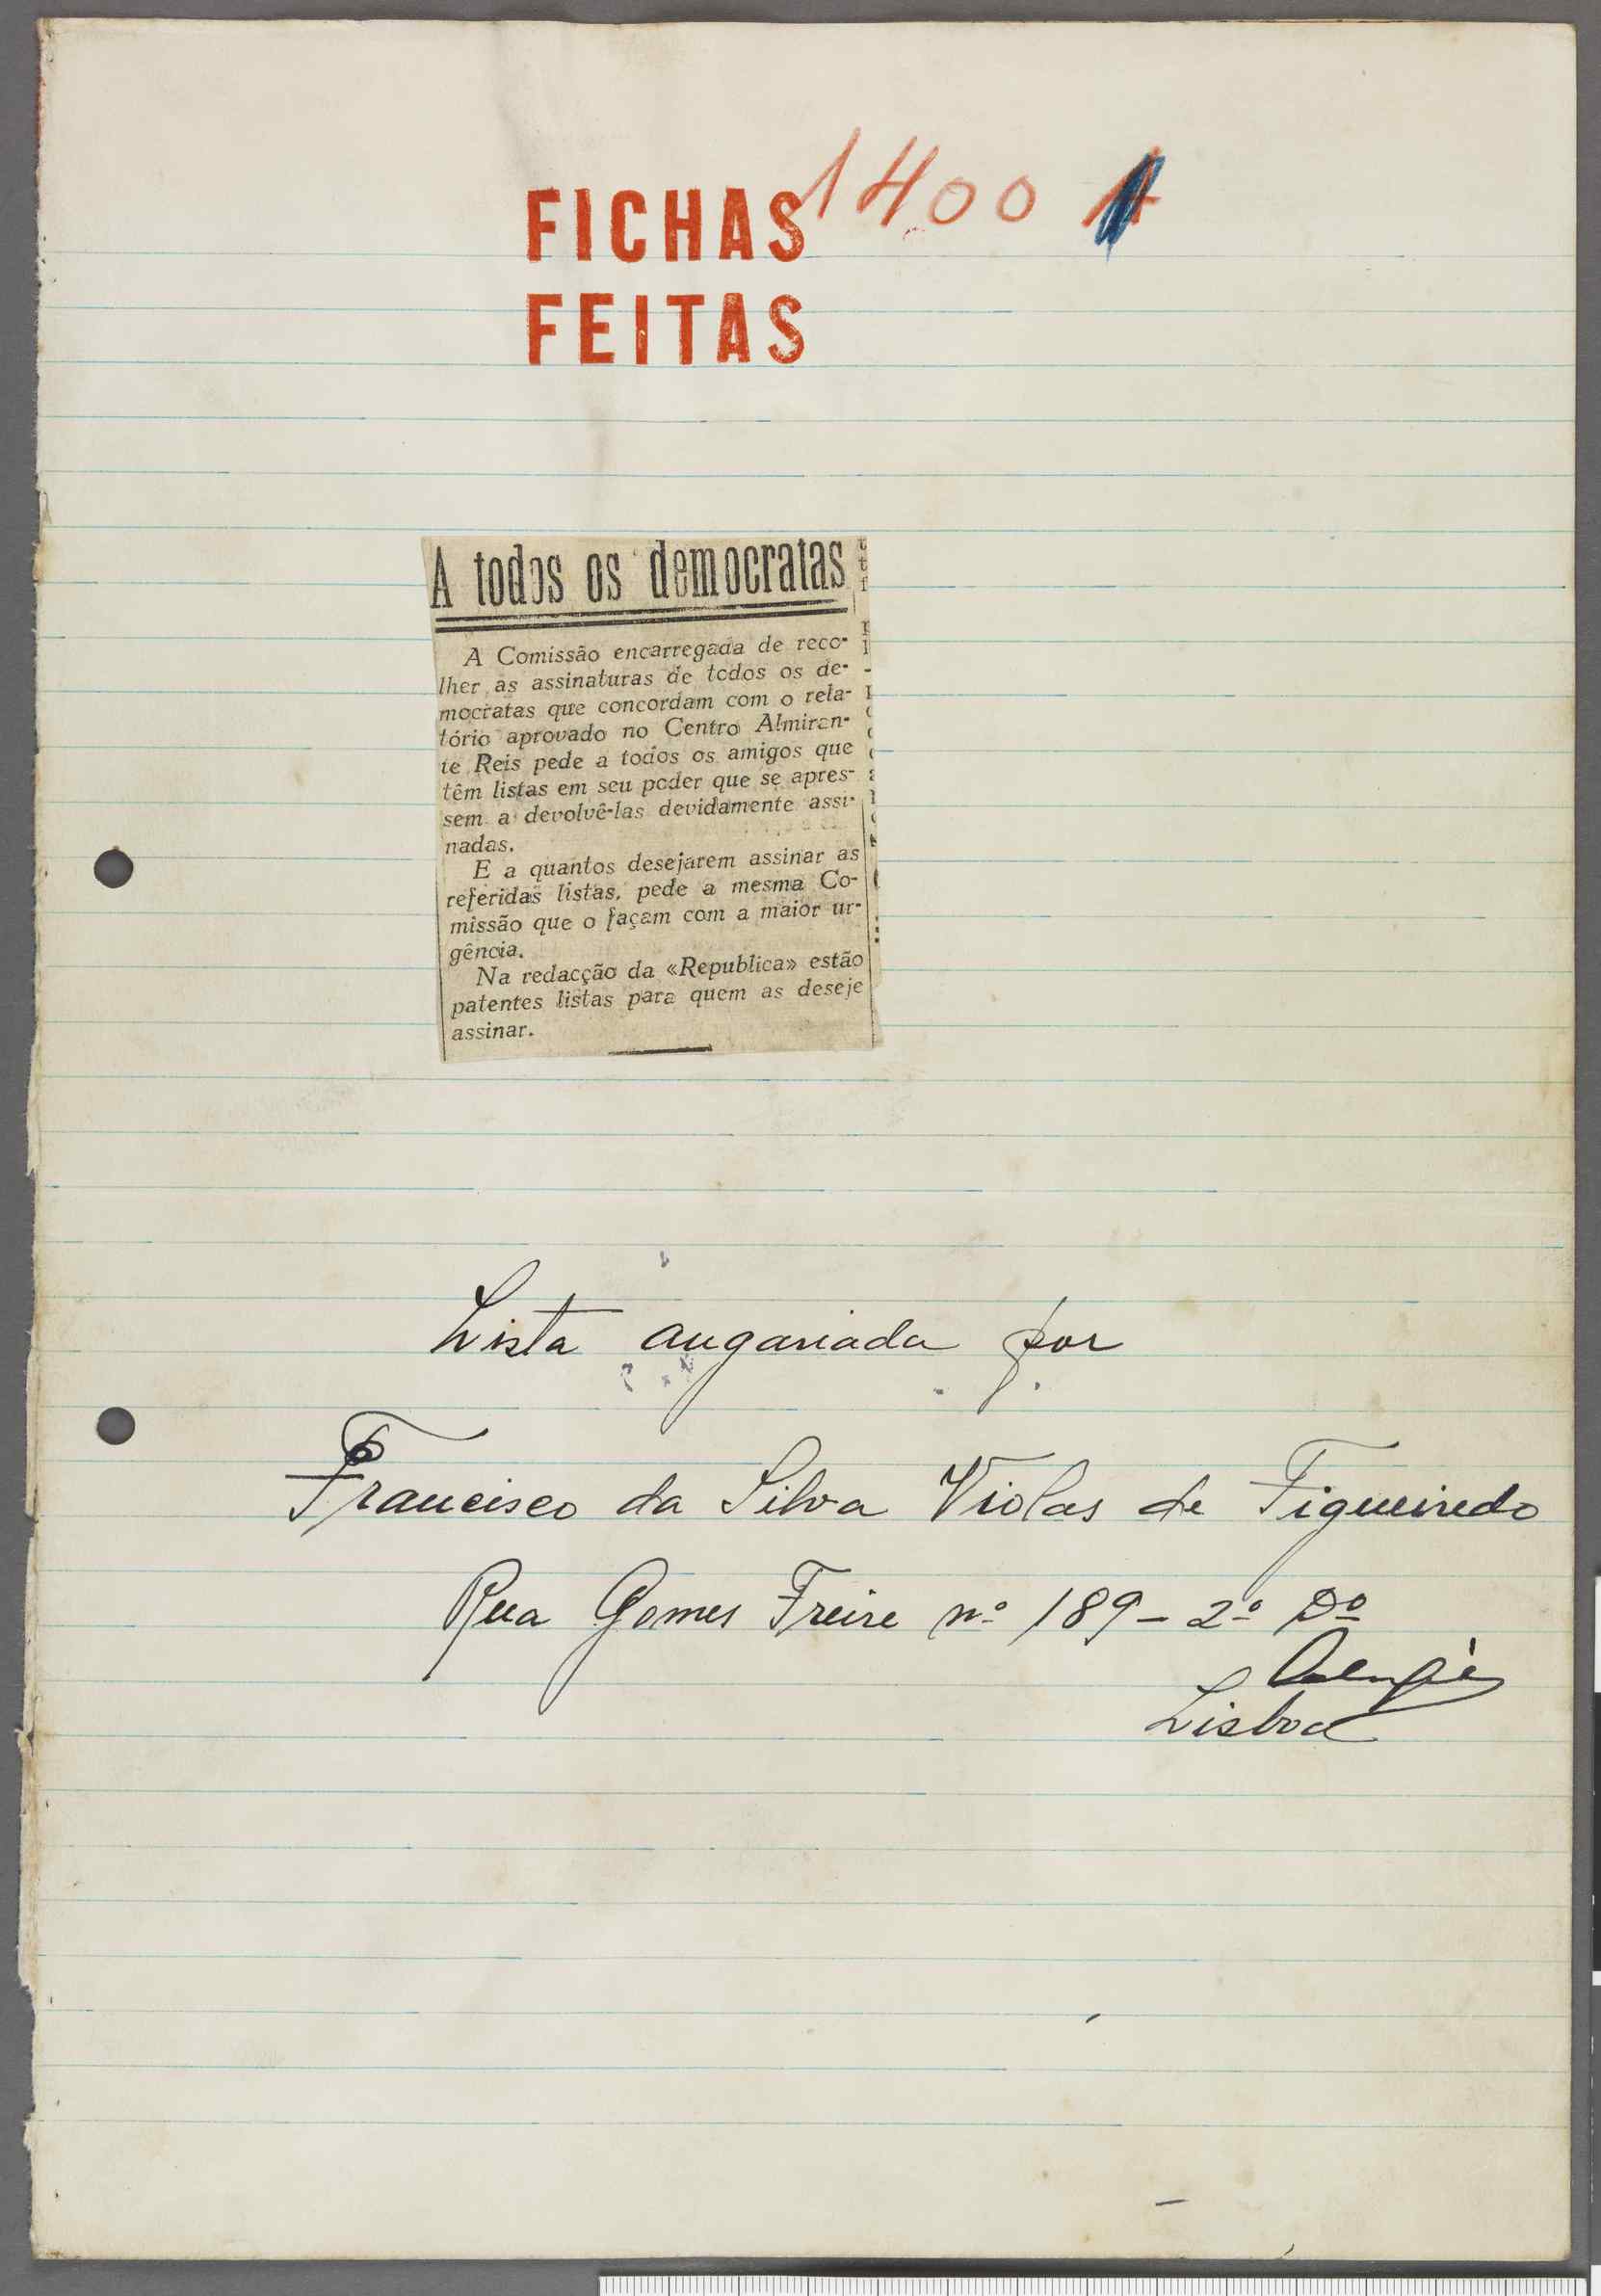 1400
FICHAS
FEITAS
A todos os democratas
A Comissão encarregada de reco-
lher as assinaturas de todos os de-
mocratas que concordam com o rela-
tório aprovado no Centro Almiran-
te Reis pede a todos os amigos que
têm listas em seu poder que se apres-
sem a devolvê-las devidamente assi-
nadas.
E a quantos desejarem assinar as
referidas listas, pede a mesma Co-
missão que o façam com a maior ur-
gência.
Na redacção da «Republica» estão
patentes listas para quem as deseje
assinar.
Lista angariada por
Francisco da Silva Violas de Figueiredo
Rua Gomes Freire nº 189 - 2º Dº
Lisboa